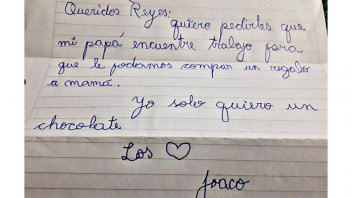 Queridos Reyes:
quiero pedirles que
mi papá encuentre trabajo para
que le podamos comprar un regalo
a mamá.
Yo solo quiero un
chocolate
Los ♡
Joaco